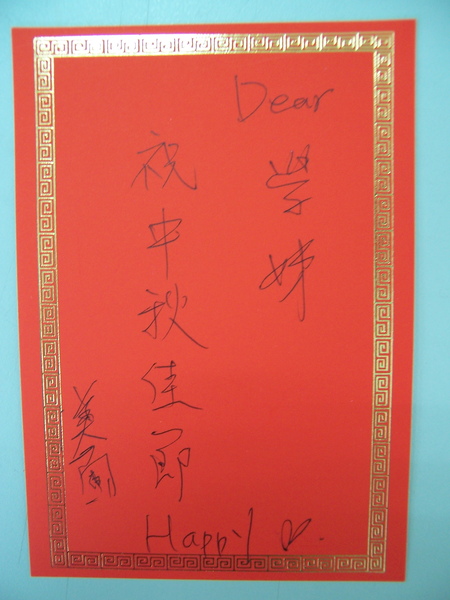 Dear
學姊
祝中秋佳節
Happy ♡.
美蘭